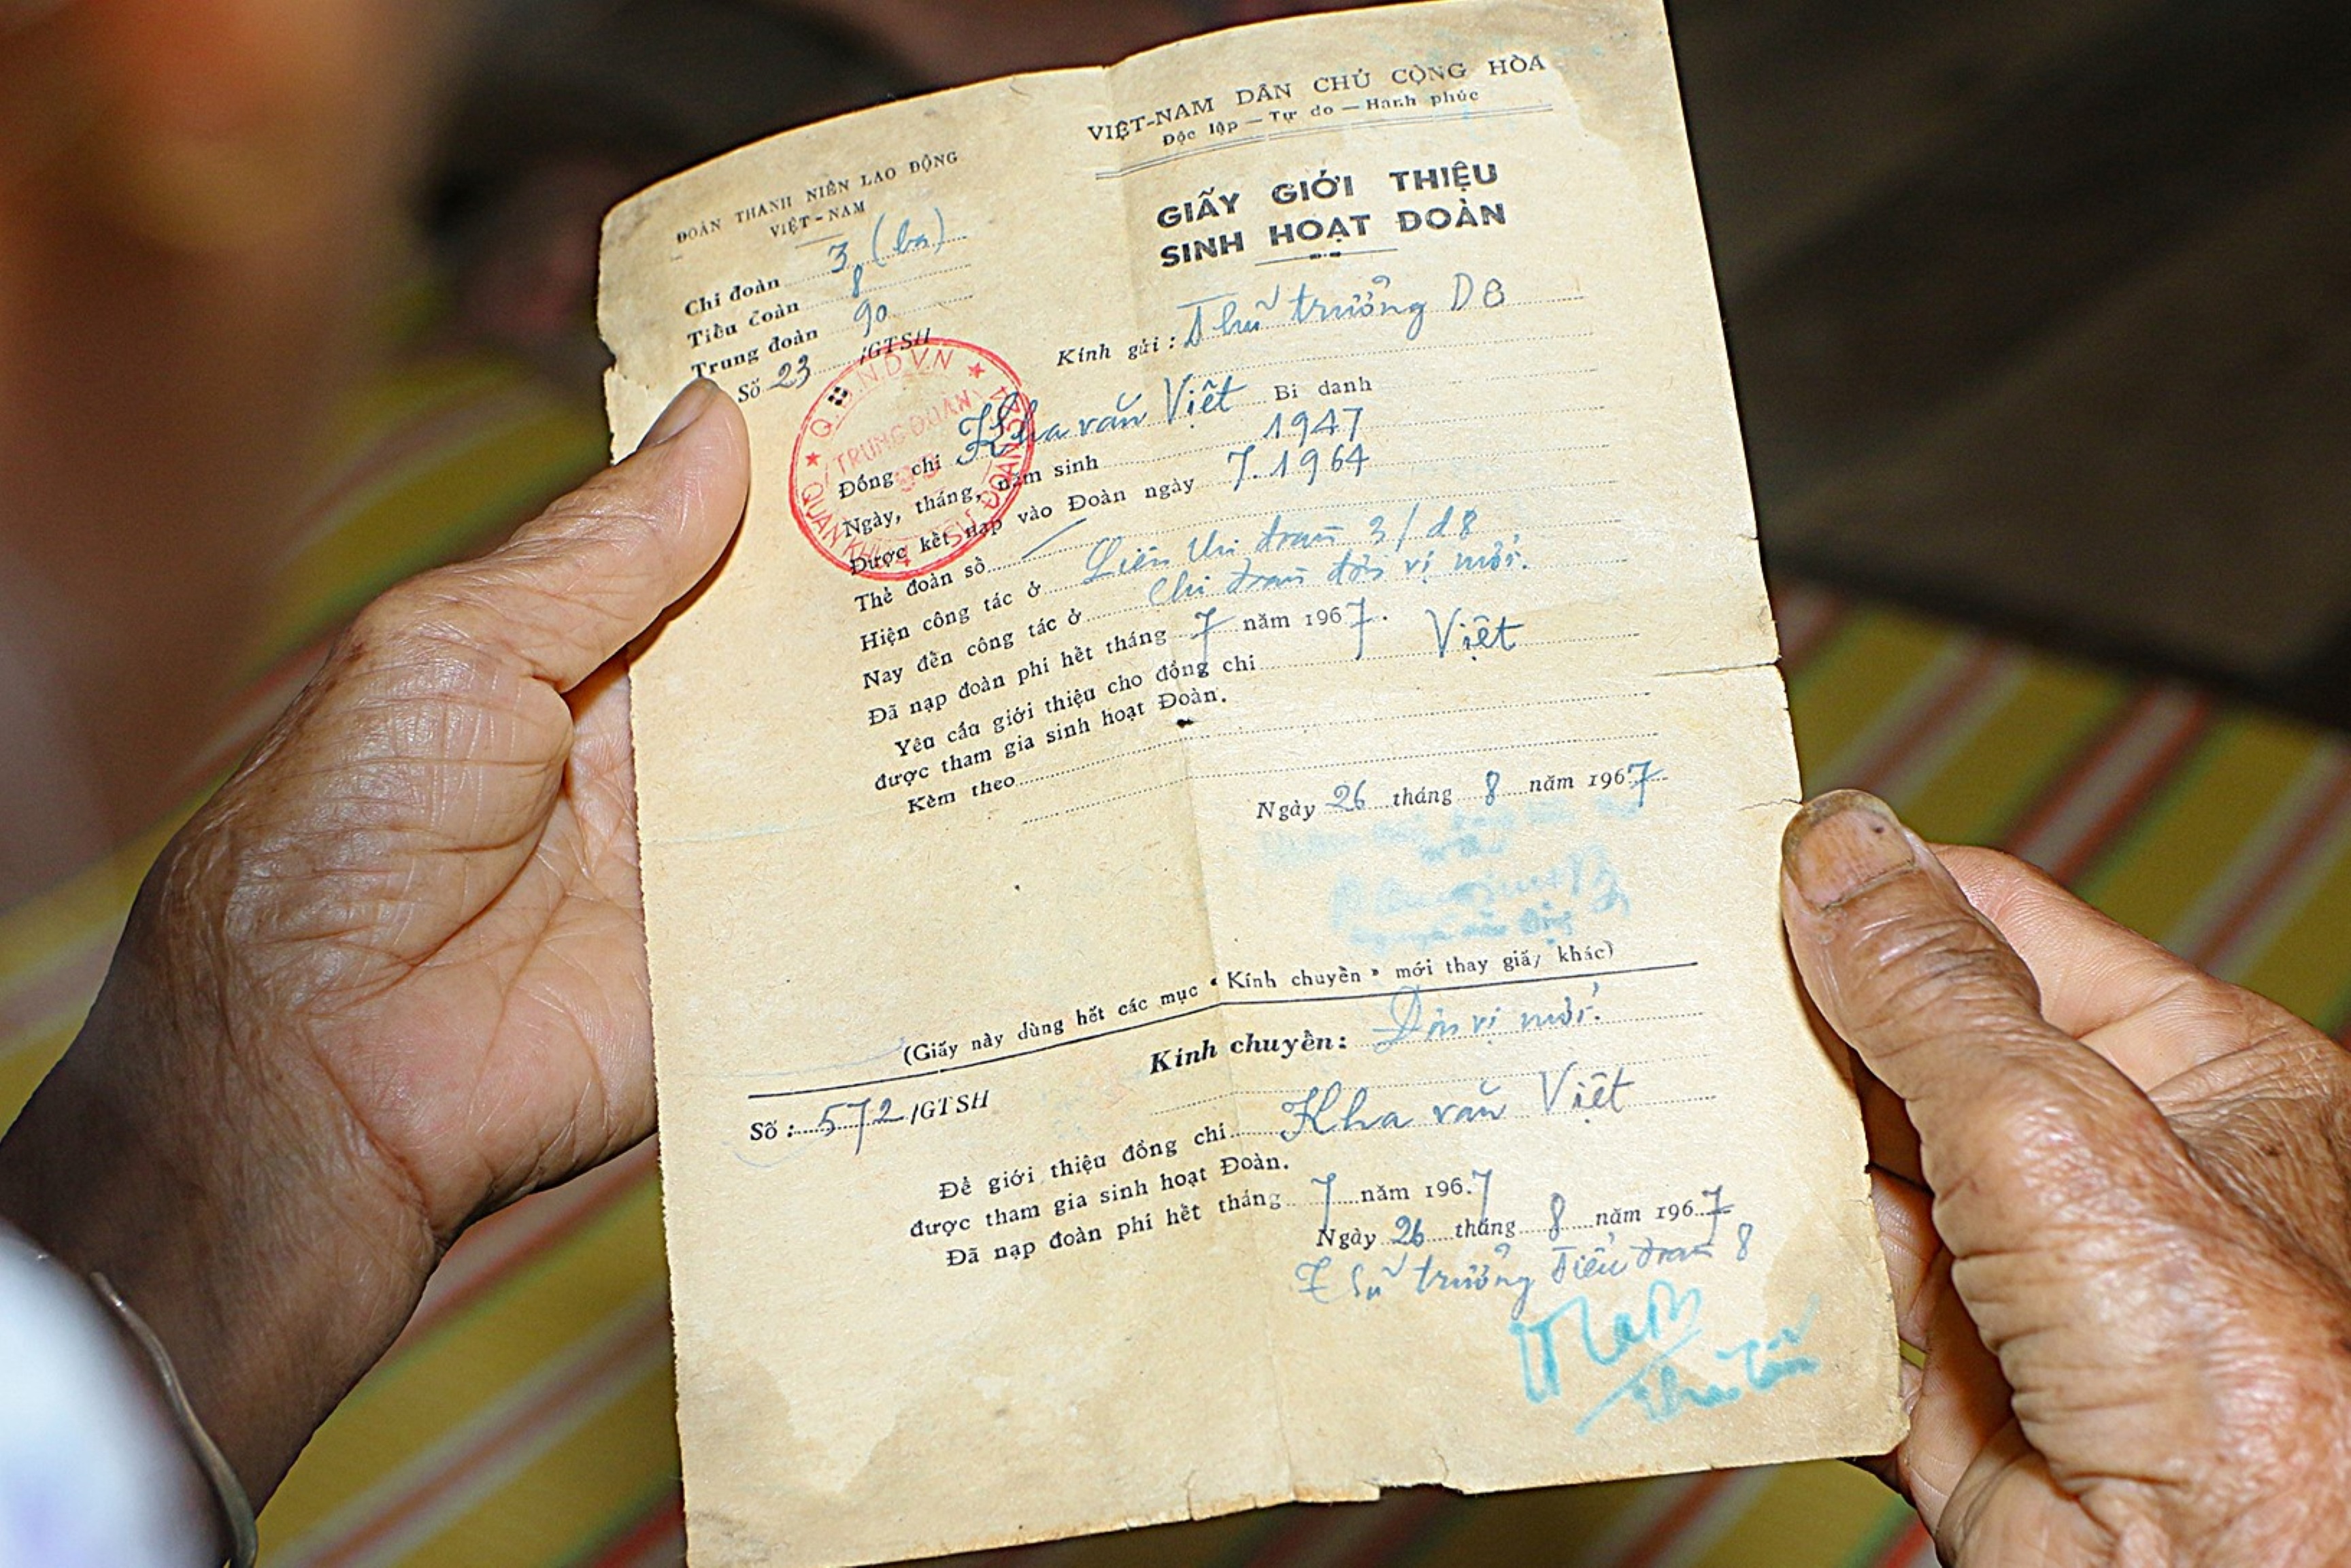 VIỆT-NAM DÂN CHỦ CỘNG HÒA
Độc lập — Tự do — Hạnh phúc
ĐOÀN THANH NIÊN LAO ĐỘNG
VIỆT-NAM
Chi đoàn 3 (ba)
Tiểu đoàn 8
Trung đoàn 90
Số 23 /GTSH
GIẤY GIỚI THIỆU
SINH HOẠT ĐOÀN
Kính gửi: Thủ trưởng D8
Q.Đ.N.D.V.N
TRUNG ĐOÀN
Đồng chí Kha văn Việt Bí danh
Ngày, tháng, năm sinh 1947
Được kết nạp vào Đoàn ngày 7.1964
Thẻ đoàn số
Hiện công tác ở Liên chi đoàn 3/d8
Nay đến công tác ở Chi đoàn đơn vị mới.
Đã nạp đoàn phí hết tháng 7 năm 1967.
Yêu cầu giới thiệu cho đồng chí Việt
được tham gia sinh hoạt Đoàn.
Kèm theo
Ngày 26 tháng 8 năm 1967
(Giấy này dùng hết các mục « Kính chuyển » mới thay giấy khác)
Kính chuyển: Đơn vị mới.
Số: 572 /GTSH
Để giới thiệu đồng chí Kha văn Việt
được tham gia sinh hoạt Đoàn.
Đã nạp đoàn phí hết tháng 7 năm 1967
Ngày 26 tháng 8 năm 1967
Thủ trưởng Tiểu đoàn 8